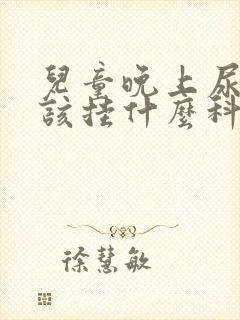 兒童晚上尿
該挂什麼科
徐慧敏